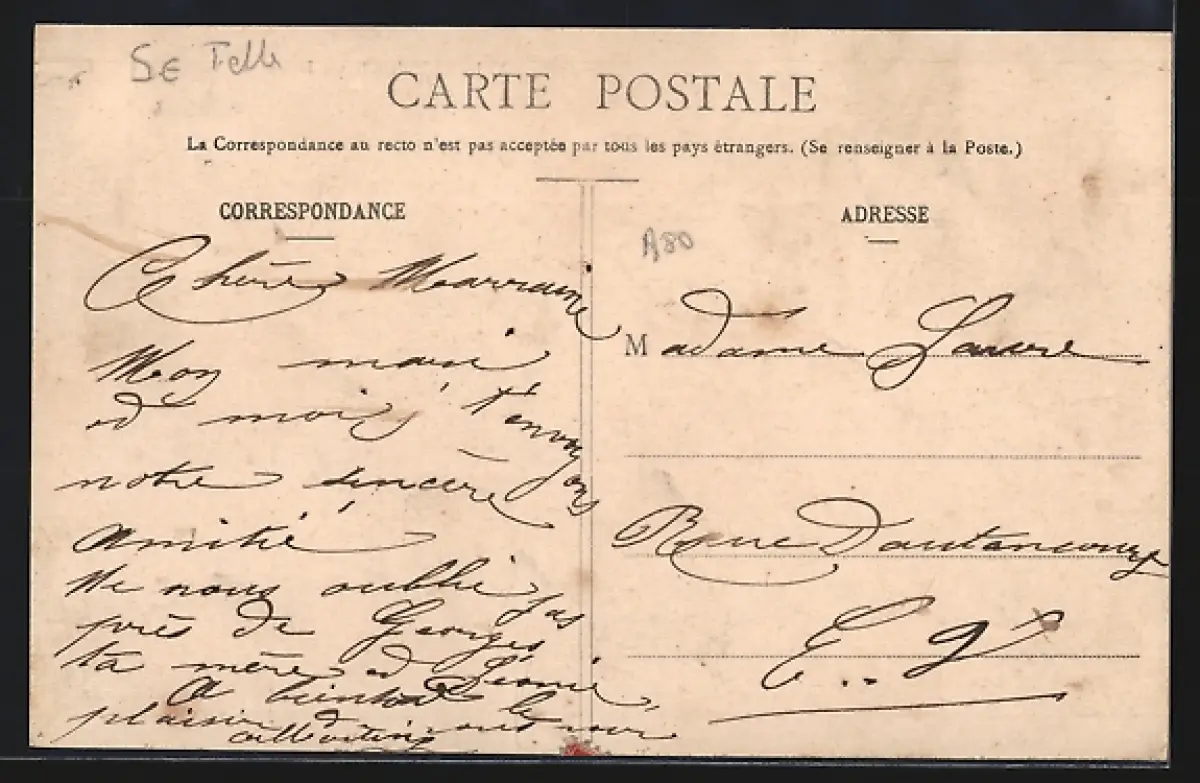 CARTE POSTALE
La Correspondance au recto n'est pas acceptée par tous les pays étrangers. (Se renseigner à la Poste.)
CORRESPONDANCE
Chère Marraine
Mon mari
et moi t'envoyons
notre sincère
amitié
Ne nous oublie pas
près de Georges
ta mère et Léonie
A bientôt le
plaisir de
ADRESSE
A80
Madame Laure
Rue Dautancourt
E.